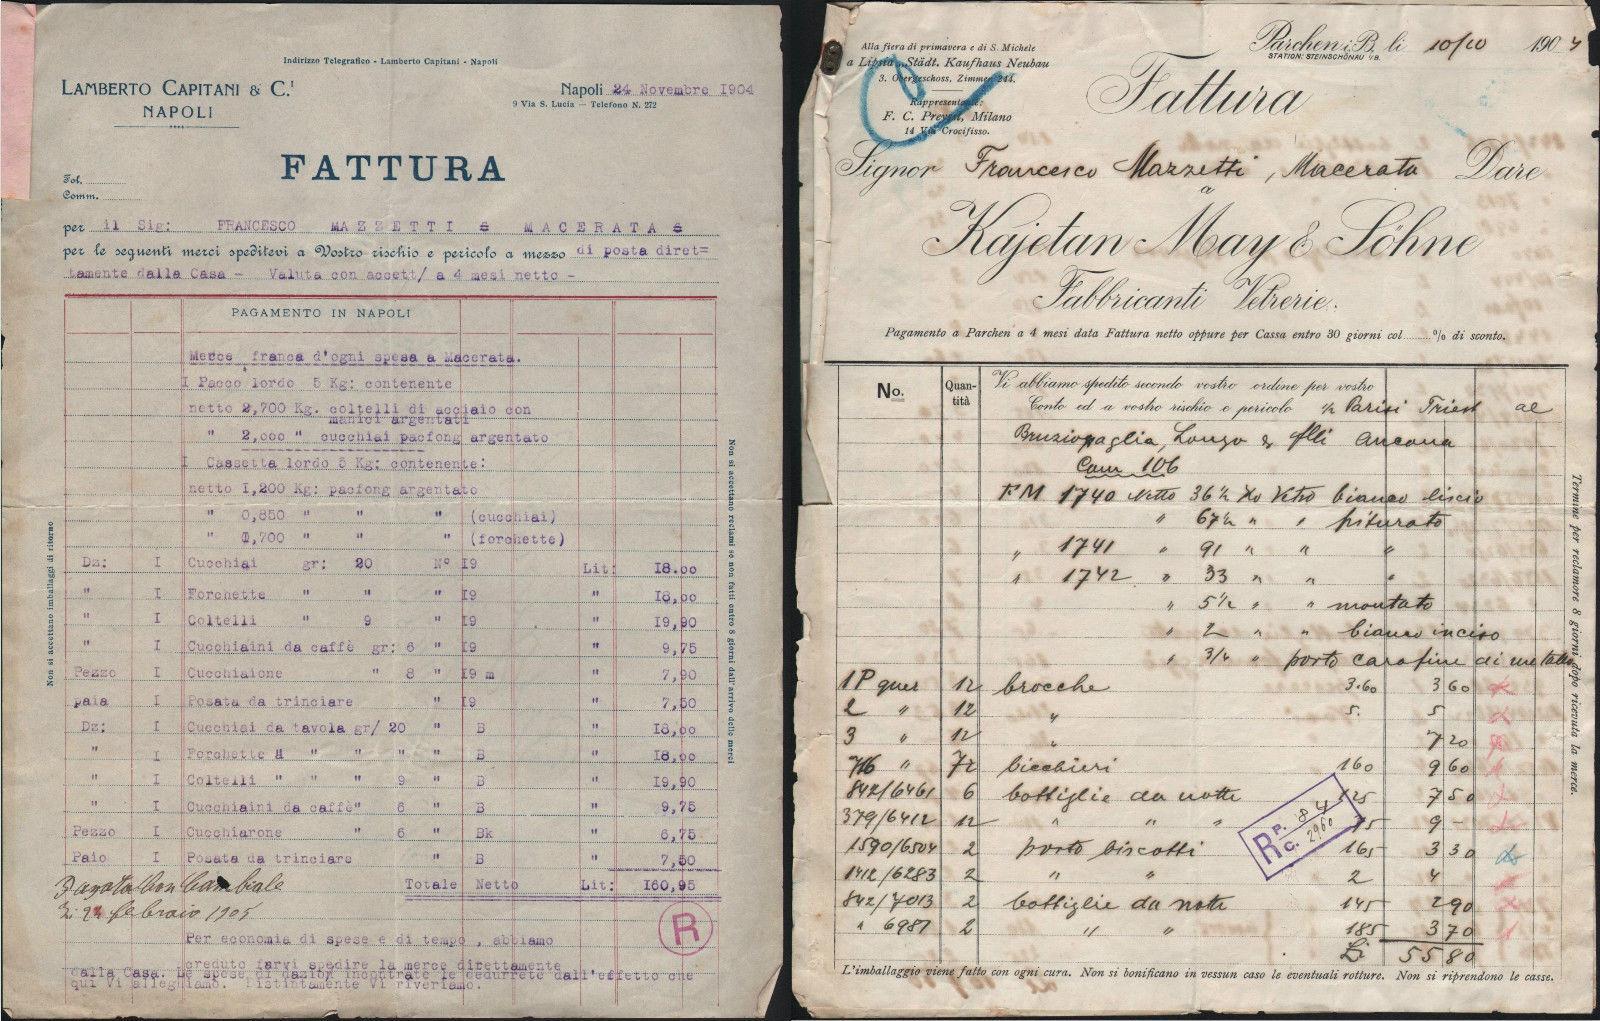 Indirizzo Telegrafico - Lamberto Capitani - Napoli
LAMBERTO CAPITANI & C.i
NAPOLI
Napoli 24 Novembre 1904
9 Via S. Lucia — Telefono N. 272
FATTURA
Fol.
Comm.
per il Sig: FRANCESCO MAZZETTI = MACERATA =
per le seguenti merci speditevi a Vostro rischio e pericolo a mezzo di posta diret=
tamente dalla Casa - Valuta con accett/ a 4 mesi netto -
PAGAMENTO IN NAPOLI
Merce franca d'ogni spesa a Macerata.
I Pacco lordo 5 Kg: contenente
netto 2,700 Kg. coltelli di acciaio con
manici argentati
" 2,000 " cucchiai pacfong argentato
I Cassetta lordo 5 Kg: contenente:
netto I,200 Kg: pacfong argentato
" 0,850 " " " (cucchiai)
" I,700 " " " (forchette)
Dz: I Cucchiai gr: 20 Nº I9 Lit: I8.00
" I Forchette " " " I9 " I8,00
" I Coltelli " 9 " I9 " I9,90
" I Cucchiaini da caffè gr: 6 " I9 " 9,75
Pezzo I Cucchiaione " 8 " I9 m " 7,90
paia I Posata da trinciare " I9 " 7,50
Dz: I Cucchiai da tavola gr/ 20 " B " I8,00
" I Forchette " " " " B " I8,00
" I Coltelli " " 9 " B " I9,90
" I Cucchiaini da caffè" 6 " B " 9,75
Pezzo I Cucchiarone " 6 " Bk " 6,75
Paio I Posata da trinciare " B " 7,50
Totale Netto Lit: I60,95
Pagata con Cambiale
febbraio 1905
R
Per economia di spese e di tempo , abbiamo
creduto farvi spedire la merce direttamente
dalla Casa. Le spese di dazion incontrate le dedurrete dall'effetto che
qui Vi alleghiamo. Distintamente Vi riveriamo.
Non si accettano imballaggi di ritorno
Non si accettano reclami se non fatti entro 8 giorni dall'arrivo delle merci
Alla fiera di primavera e di S. Michele
a Lipsia Städt. Kaufhaus Neubau
3. Obergeschoss, Zimmer 244.
Rappresentante:
F. C. Milano
14 Via Crocifisso.
Parchen i. B. li 10/10 1904
STATION: STEINSCHÖNAU i/B.
Fattura
Signor Francesco Mazzetti, Macerata Dare
a
Kajetan May & Söhne
Fabbricanti Vetrerie.
Pagamento a Parchen a 4 mesi data Fattura netto oppure per Cassa entro 30 giorni col % di sconto.
No. Quantità Vi abbiamo spedito secondo vostro ordine per vostro
Conto ed a vostro rischio e pericolo Parisi Triest al
Longo & flli Ancona
Com 106
FM 1740 Netto 36½ Ko Vetro bianco liscio
" 67½ " " piturato
" 1741 " 91 " " "
" 1742 " 33 " " "
" 5½ " " montato
" 2 " " bianco inciso
" 3/4 " porto carafine di metallo
1P quer 12 brocche 3.60 3 60
2 " 12 " 5. 5
3 " 12 " 7 20
" 72 bicchieri 160 9 60
842/6461 6 bottiglie da notte 125 7 50
379/6412 12 " " " 75 9 -
1590/6504 2 porto biscotti 165 3 30
1412/6283 2 " " 2 4
842/7013 2 bottiglie da notte 145 2 90
" 6987 2 " " 185 3 70
Li 55 80
R P. 84
C. 2960
L'imballaggio viene fatto con ogni cura. Non si bonificano in vessun caso le eventuali rotture. Non si riprendono le casse.
Termine per reclamore 8 giorni dopo ricevuta la merce.